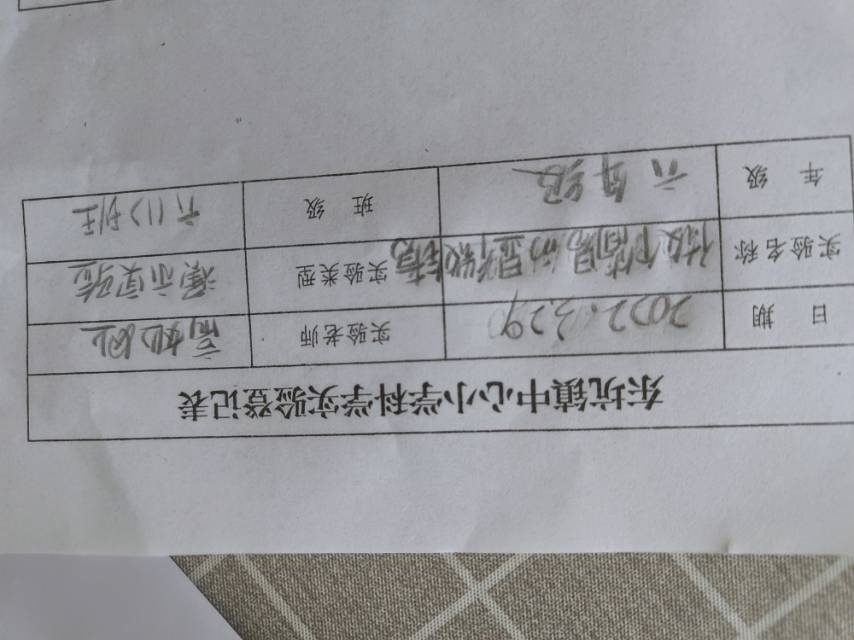 东坑镇中心小学科学实验登记表
日 期 2022.3.29 实验老师
实验名称 做个简易的显微镜 实验类型 演示实验
年 级 六年级 班 级 六(1)班